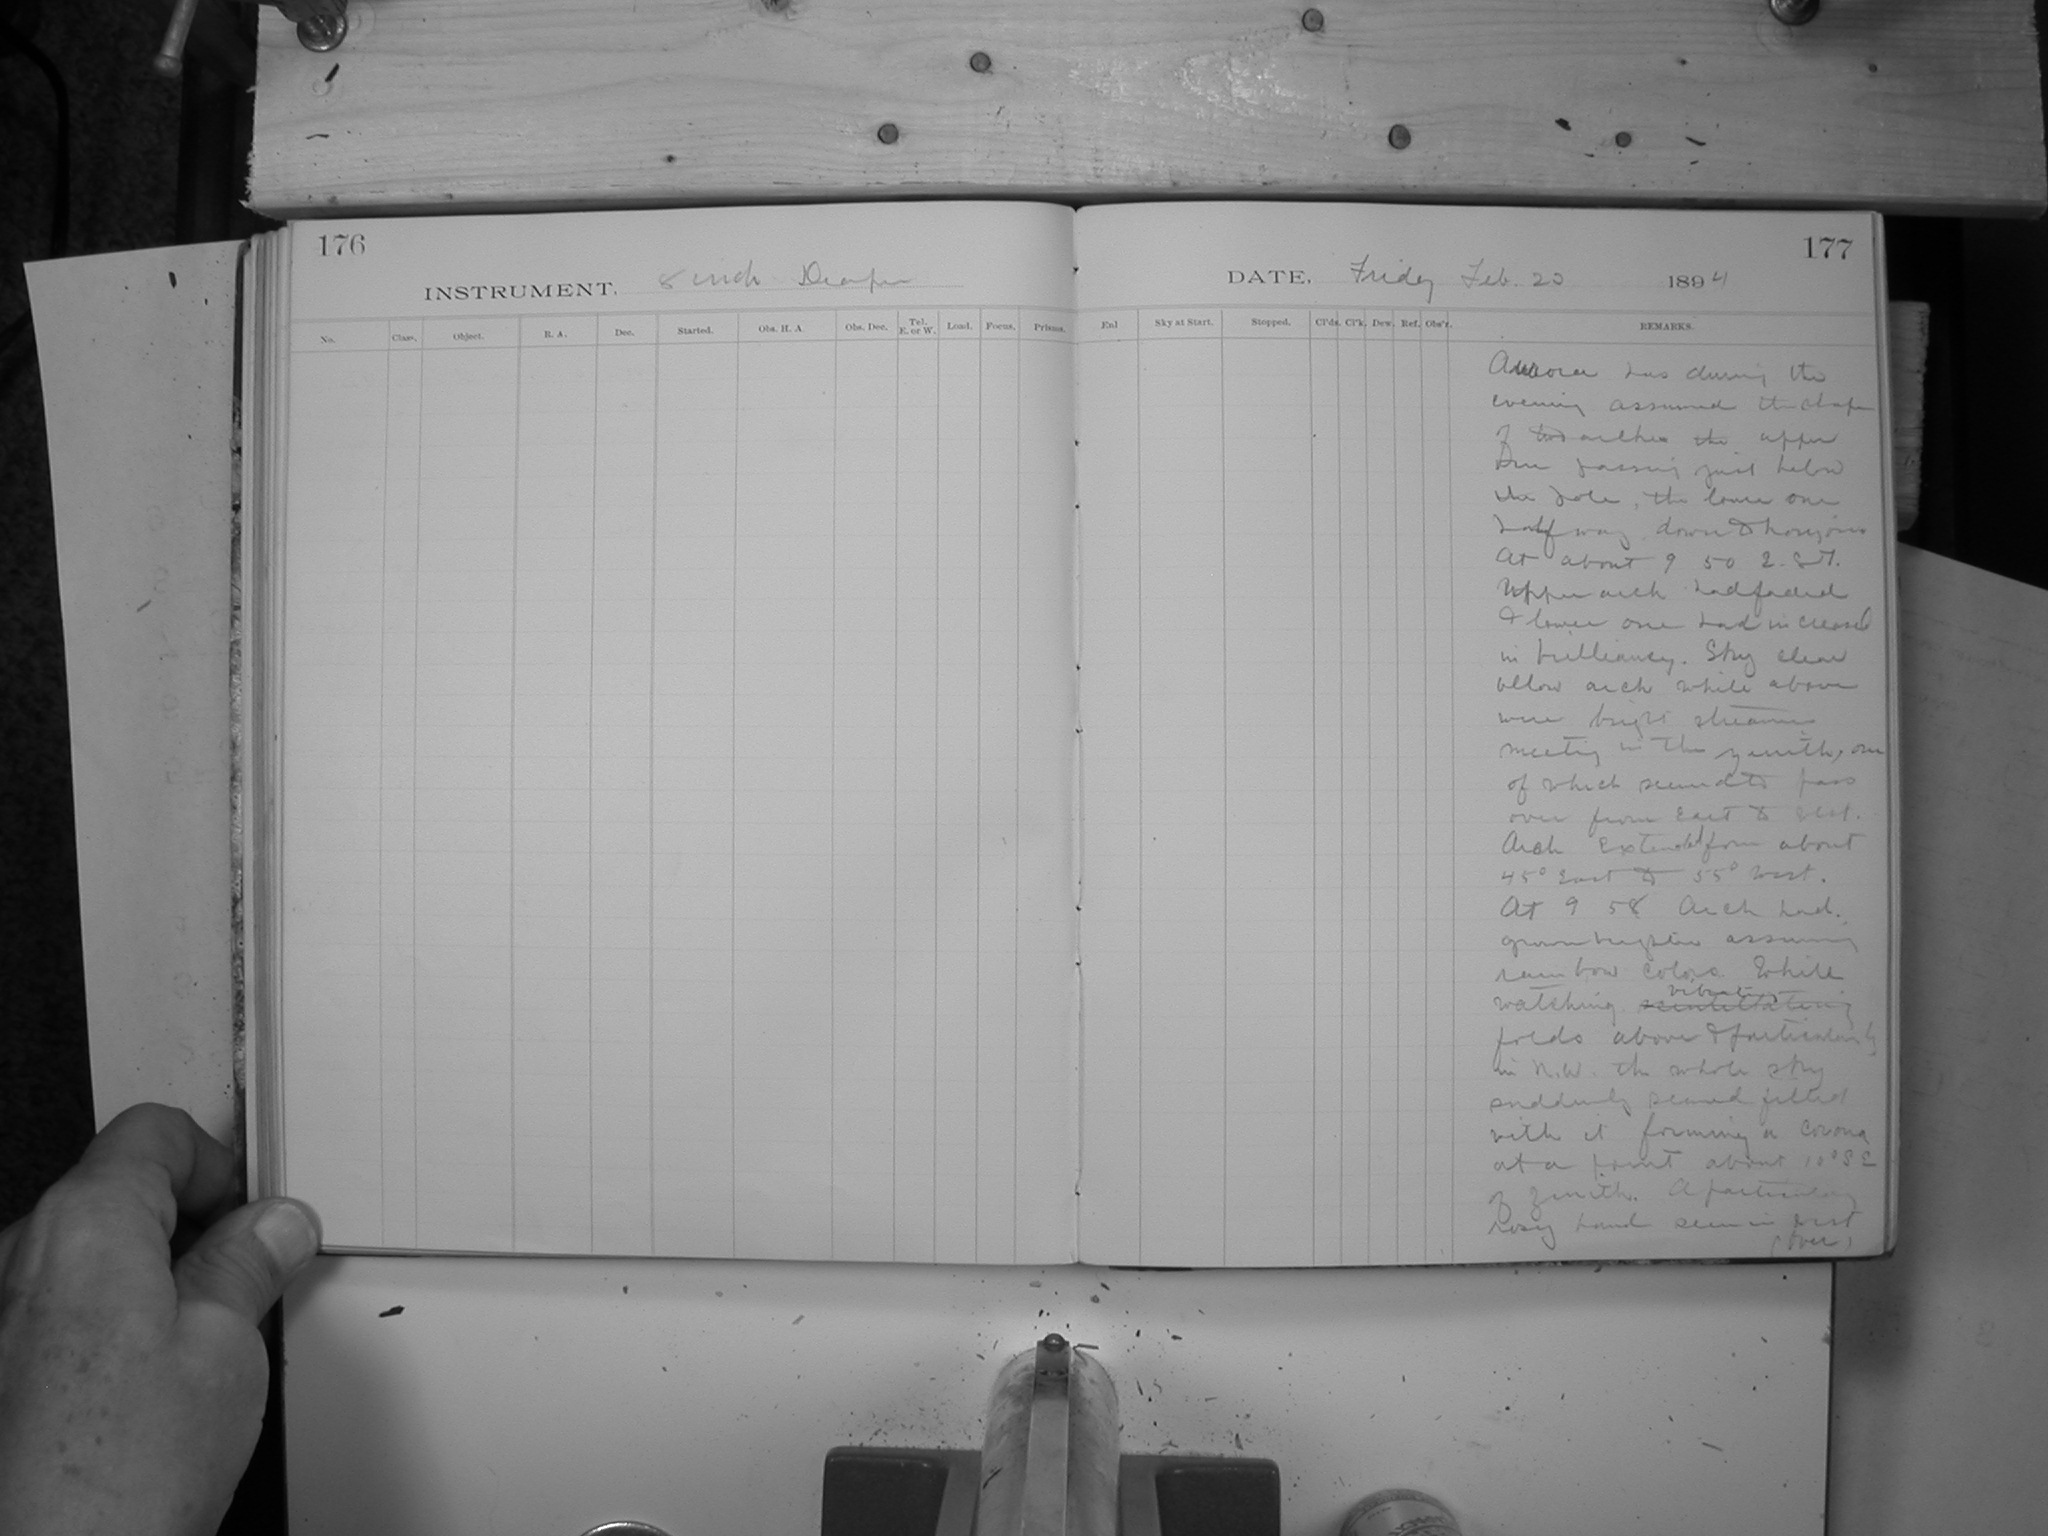 176
177
INSTRUMENT. 8 inch Draper
DATE. Friday Feb. 23 1894
No. Class. Object. R. A. Dec. Started. Obs. H. A. Obs. Dec. Tel. E. or W. Load. Focus. Prisms. Enl Sky at Start. Stopped. Cl'ds. Cl'k. Dew. Ref. Obs'r. REMARKS.
Aurora has during the
evening assumed the shape
of two arches the upper
One passing just below
the pole, the lower one
half way down to horizon
At about 9 50 E. S. T.
Upper arch had faded
& lower one had increased
in brilliancy. Sky clear
below arch while above
were bright streamers
meeting in the zenith, one
of which seemed to pass
over from East to West.
Arch Extended from about
45° East to 55° West.
At 9 58 Arch had
grown brighter assuming
rainbow colors. While
watching scintillating vibrating
folds above & particularly
in N.W. the whole sky
suddenly seemed filled
with it forming a corona
at a point about 10° S E
of zenith. A particularly
rosy band seen in West
(over)